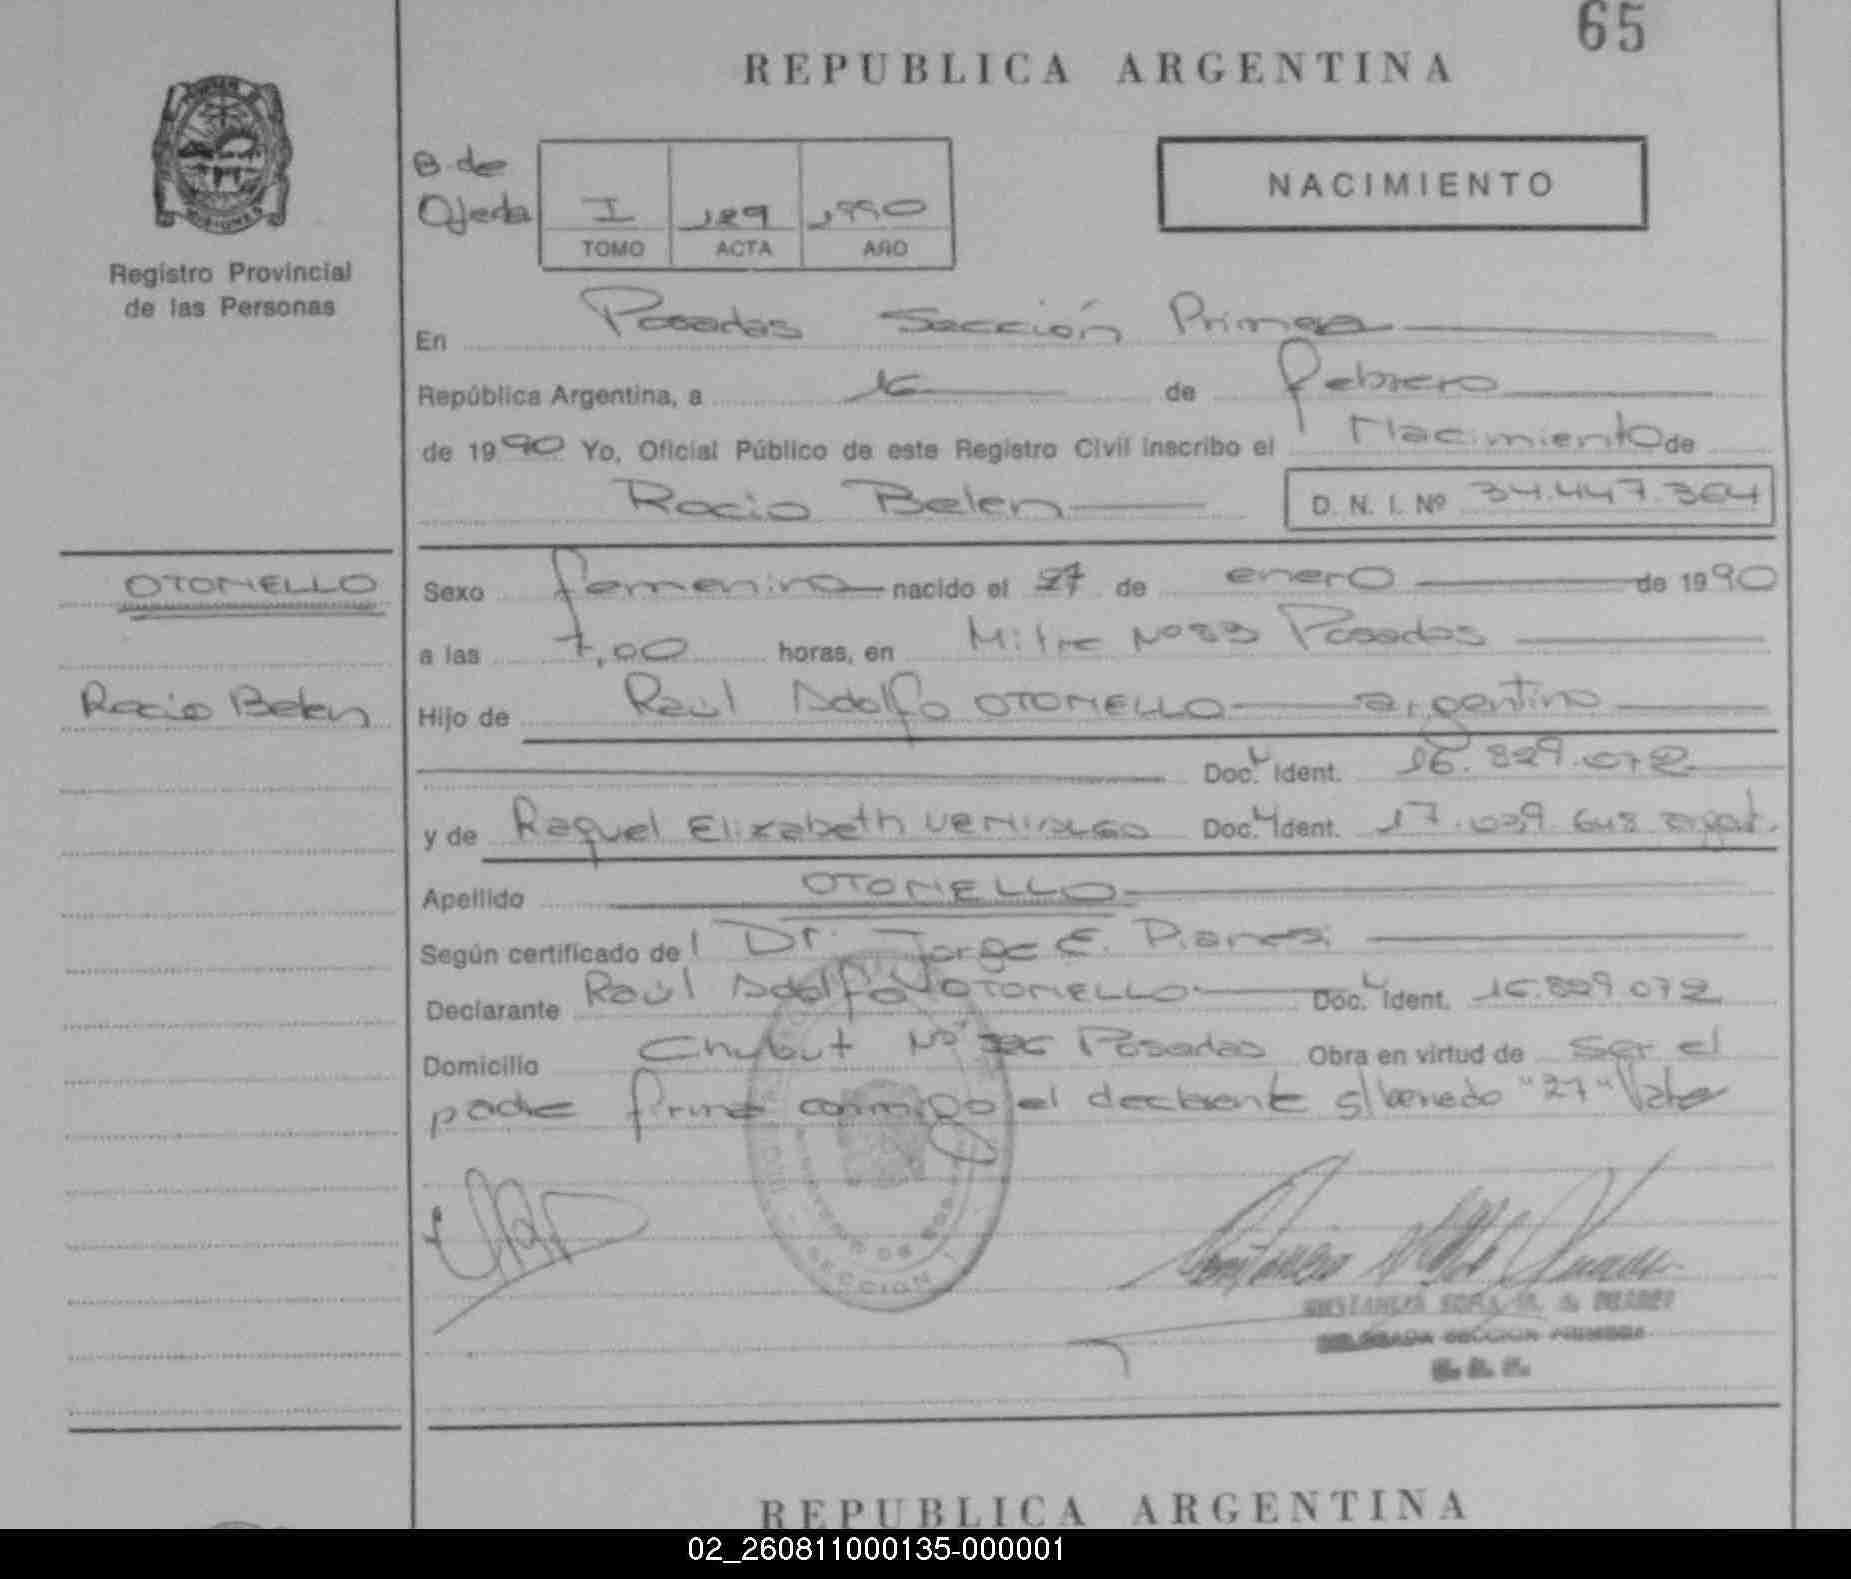 65
REPUBLICA ARGENTINA
B. de
Ojeda
I 129 1990
TOMO ACTA AÑO
NACIMIENTO
MISIONES
Registro Provincial
de las Personas
En Posadas Sección Primera
República Argentina, a 16 de febrero
de 1990 Yo, Oficial Público de este Registro Civil inscribo el Nacimiento de
Rocio Belen D. N. I. Nº 34.447.364
OTONELLO
Sexo femenino nacido el 27 de enero de 1990
a las 7,00 horas, en Mitre Nº 83 Posadas
Rocio Belen
Hijo de Raúl Adolfo OTONELLO argentino
Doc. Ident. 16.829.072
y de Raquel Elizabeth Doc. Ident. 17.039.648 argent.
Apellido OTONELLO
Según certificado del Dr. Jorge E. Pianesi
Declarante Raúl Adolfo OTONELLO Doc. Ident. 16.829.072
Domicilio Chubut Nº Posadas Obra en virtud de ser el
padre firma conmigo el declarante s/borrado "27" Vale
SECCION 1
SECCION PRIMERA
REPUBLICA ARGENTINA
02_260811000135-000001